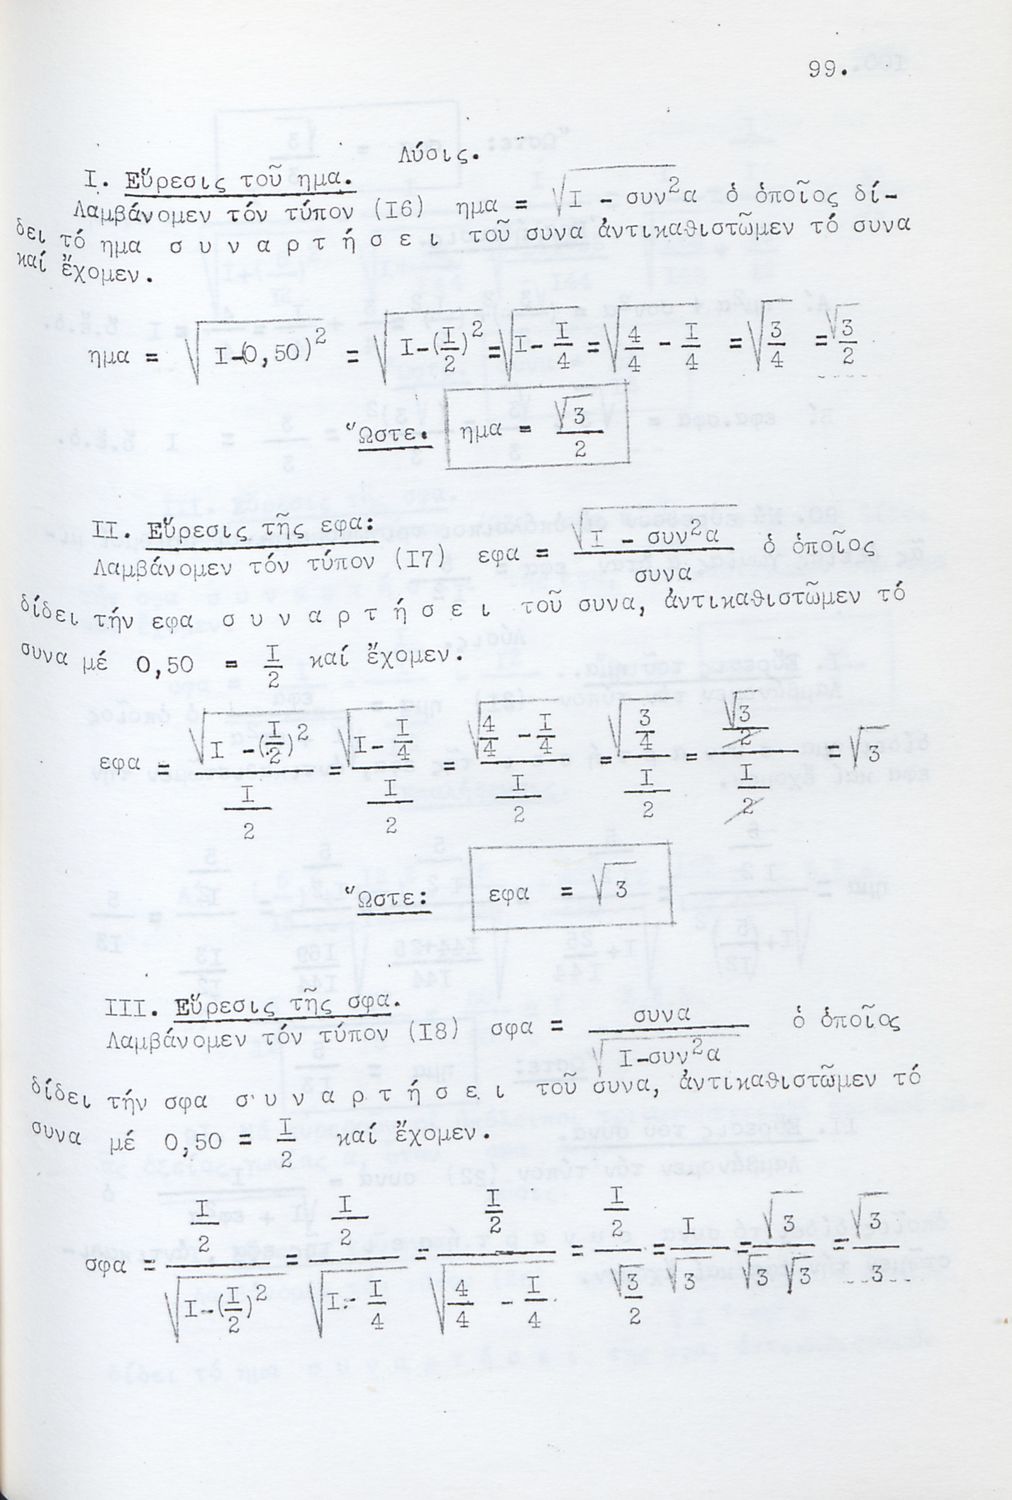 99.
Λύσις.
I. Εὕρεσις τοῦ ημα.
Λαμβάνομεν τόν τύπον (I6) ημα = √(I - συν²α) ὁ ὁποῖος δί-
δει τό ημα σ υ ν α ρ τ ή σ ε ι τοῦ συνα ἀντικαθιστῶμεν τό συνα
καί ἔχομεν.
ημα = √(I-(0,50)²) = √(I-(I/2)²) = √(I- I/4) = √(4/4 - I/4) = √(3/4) = √3/2
Ὥστε. ημα = √3/2
II. Εὕρεσις τῆς εφα:
Λαμβάνομεν τόν τύπον (I7) εφα = √(I - συν²α)/συνα ὁ ὁποῖος
δίδει τήν εφα σ υ ν α ρ τ ή σ ε ι τοῦ συνα, ἀντικαθιστῶμεν τό
συνα μέ 0,50 = I/2 καί ἔχομεν.
εφα = √(I -(I/2)²)/(I/2) = √(I- I/4)/(I/2) = √(4/4 - I/4)/(I/2) = √(3/4)/(I/2) = (√3/2)/(I/2) = √3
Ὥστε: εφα = √3
III. Εὕρεσις τῆς σφα.
Λαμβάνομεν τόν τύπον (I8) σφα = συνα/√(I-συν²α) ὁ ὁποῖος
δίδει τήν σφα σ υ ν α ρ τ ή σ ε ι τοῦ συνα, ἀντικαθιστῶμεν τό
συνα μέ 0,50 = I/2 καί ἔχομεν.
σφα = (I/2)/√(I-(I/2)²) = (I/2)/√(I- I/4) = (I/2)/√(4/4 - I/4) = (I/2)/(√3/2) = I/√3 = √3/(√3 √3) = √3/3